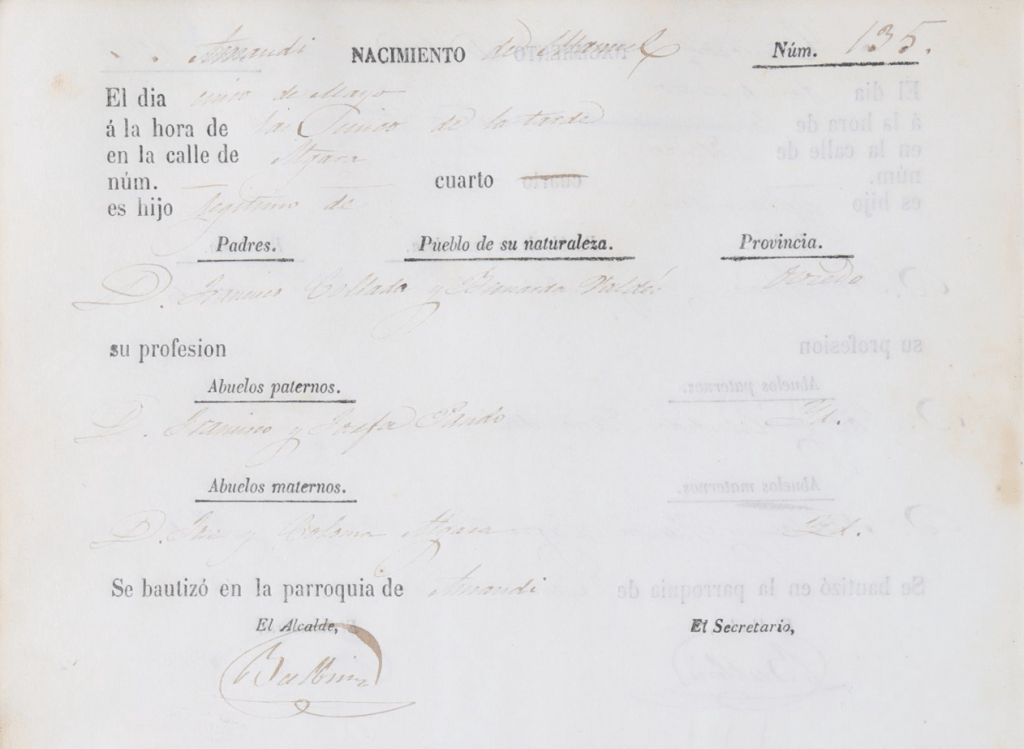 Amandi NACIMIENTO de Manuel Núm. 135.
El dia cinco de Mayo
á la hora de las Cinco de la tarde
en la calle de
núm. cuarto
es hijo legitimo de
Padres. Pueblo de su naturaleza. Provincia.
D. Francisco Collada y Bernarda Valdés Oviedo
su profesion
Abuelos paternos.
D. Francisco y Josefa Pando Id.
Abuelos maternos.
D. José y Coloma Id.
Se bautizó en la parroquia de Amandi
El Alcalde, El Secretario,
Balbin